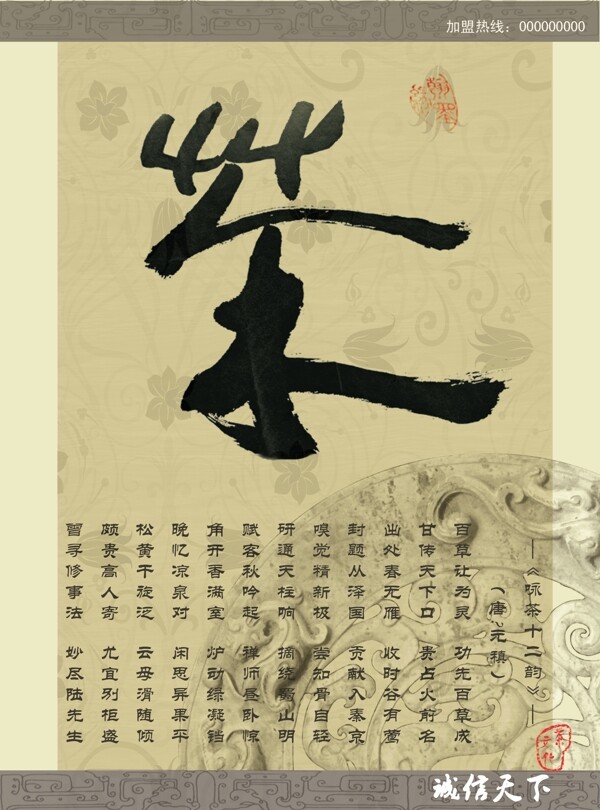 加盟热线：000000000
茶
—《咏茶十二韵》—
（唐·元稹）
百草让为灵 功先百草成
甘传天下口 贵占火前名
出处春无雁 收时谷有莺
封题从泽国 贡献入秦京
嗅觉精新极 尝知骨自轻
研通天柱响 摘绕蜀山明
赋客秋吟起 禅师昼卧惊
角开香满室 炉动绿凝铛
晚忆凉泉对 闲思异果平
松黄干旋泛 云母滑随倾
颇贵高人寄 尤宜别柜盛
曾寻修事法 妙尽陆先生
茶文化
诚信天下